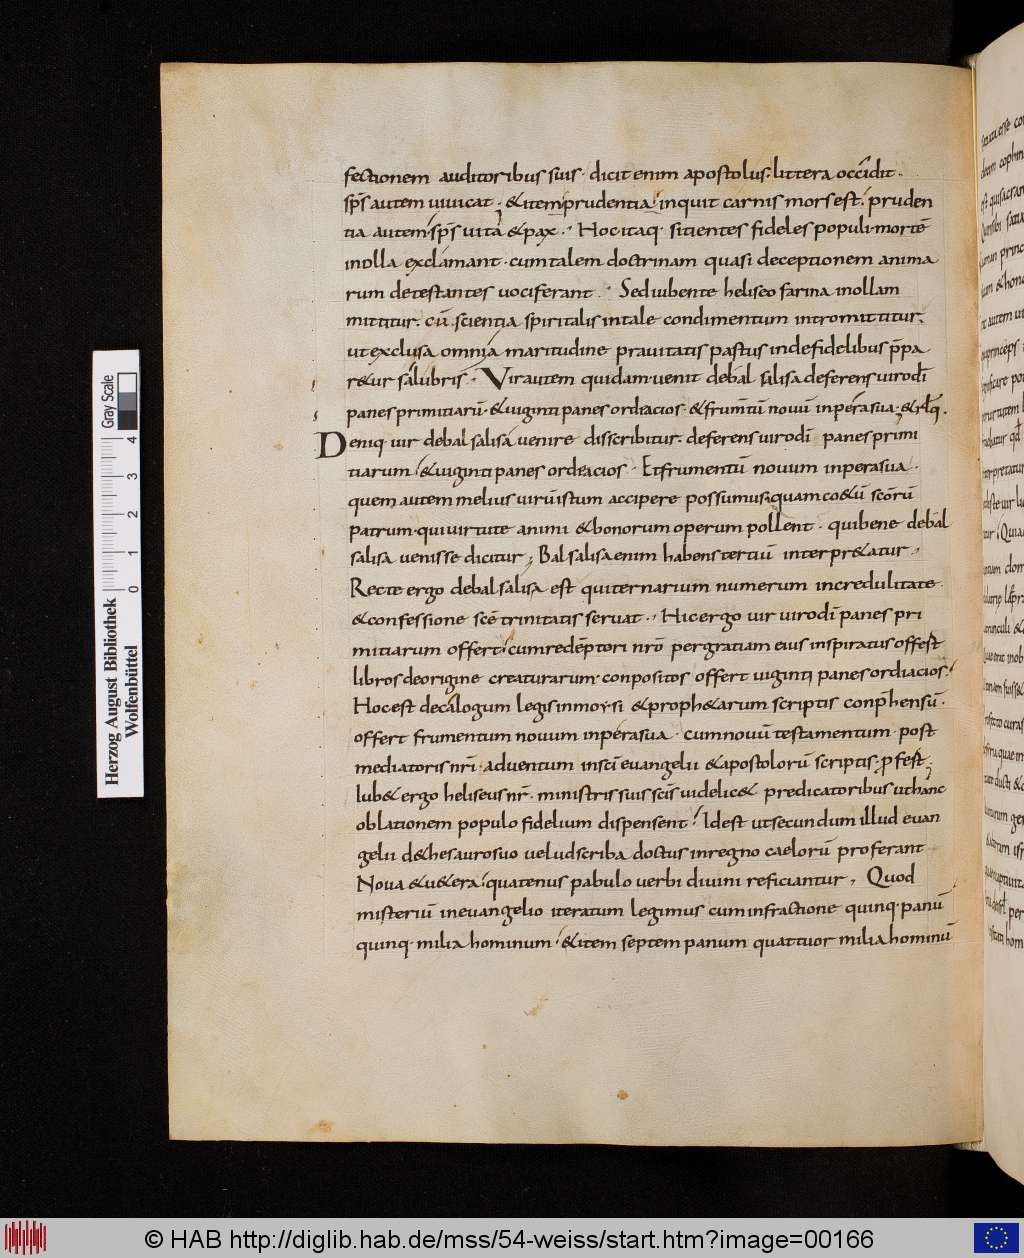 fectionem auditoribus suis · dicit enim apostolus · littera occidit ·
sp̄s autem uiuicat ; & item prudentia inquit carnis mors est · pruden
tia autem · sp̄s uita & pax · Hoc itaq · sitientes fideles populi · mortē
in olla exclamant · cum talem doctrinam quasi deceptionem anima
rum detestantes uociferant · Sed iubente heliseo farina in ollam
mittitur · cū scientia spiritalis in tale condimentum intromittitur ·
ut exclusa omnia maritudine prauitatis pastus inde fidelibus p̄pa
r&ur salubris · Vir autem quidam uenit de bal salisa deferens uiro dī
panes primitiarū · & uiginti panes ordeacios · & frumtū nouū in pera sua ; & rlq ·
Deniq · uir de bal salisa uenire disscribitur · deferens uiro dī panes primi
tiarum & uiginti panes ordeacios · Et frumentū nouum in pera sua ·
quem autem melius uirū istum accipere possumus quam co&ū scōrū
patrum · qui uirtute animi & bonorum operum pollent · qui bene de bal
salisa uenisse dicitur ; Bal salisa enim habens tertiū interpr&atur ·
Recte ergo de bal salisa est qui ternarium numerum incredulitate
& confessione scē trinitatis seruat · Hic ergo uir uiro dī panes pri
mitiarum offert · cum redēptori nrō per gratiam eius inspiratus offest
libros de origine creaturarum · conpositos offert uiginti panes ordiacios ·
Hoc est decalogum legis in moysi & proph&arum scriptis conp̄hensū ·
offert frumentum nouum in pera sua · cum nouū testamentum · post
mediatoris nrī · aduentum in scī euangelii & apostolorū scriptis · p fest ·
Iub& ergo heliseus nr̄ · ministris suis scīs uidelic& predicatoribus ut hanc
oblationem populo fidelium dispensent · Id est ut secundum illud euan
gelii d& hesauro suo uelud scriba doctus in regno caelorū proferant
Noua & u&era · quatenus pabulo uerbi diuini reficiantur · Quod
misteriū in euangelio iteratum legimus cum infractione quinq · panū
quinq · milia hominum · & item septem panum quattuor milia hominū
Herzog August Bibliothek
Wolfenbüttel
Gray Scale
0 1 2 3 4
© HAB http://diglib.hab.de/mss/54-weiss/start.htm?image=00166